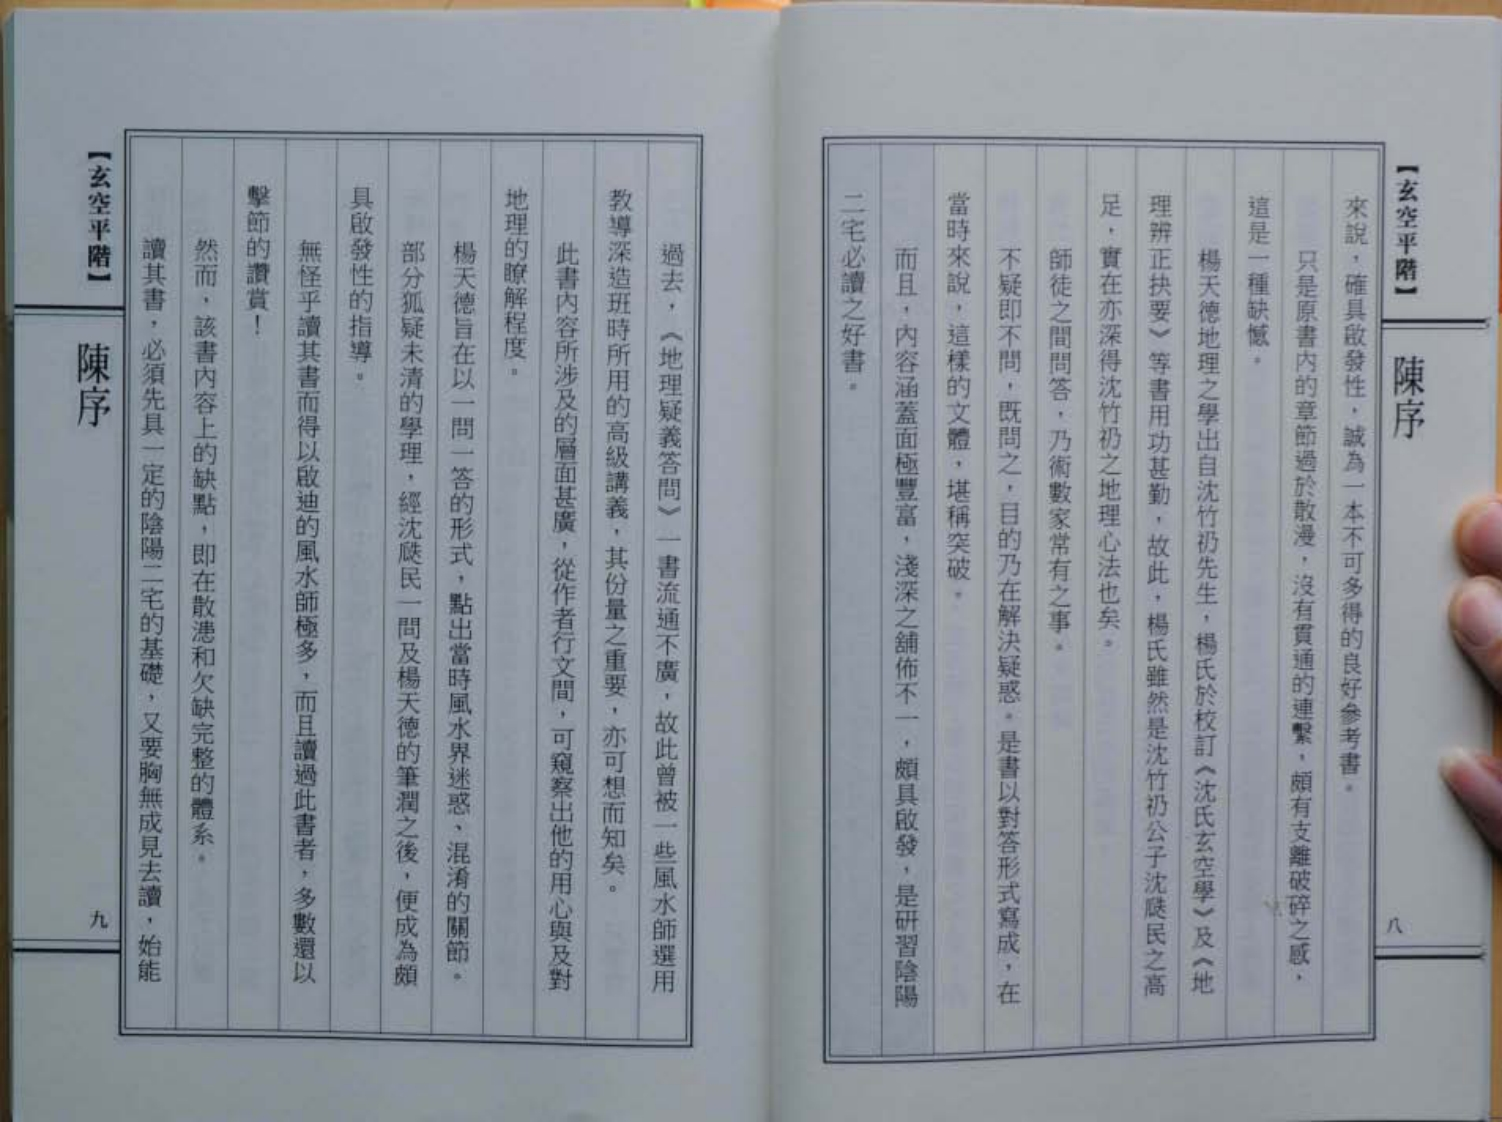 【玄空平階】
陳序
八
來說，確具啟發性，誠為一本不可多得的良好參考書。
只是原書內的章節過於散漫，沒有貫通的連繫，頗有支離破碎之感，
這是一種缺憾。
楊天德地理之學出自沈竹礽先生，楊氏於校訂《沈氏玄空學》及《地
理辨正抉要》等書用功甚勤，故此，楊氏雖然是沈竹礽公子沈瓞民之高
足，實在亦深得沈竹礽之地理心法也矣。
師徒之間問答，乃術數家常有之事。
不疑即不問，既問之，目的乃在解決疑惑。是書以對答形式寫成，在
當時來說，這樣的文體，堪稱突破。
而且，內容涵蓋面極豐富，淺深之舖佈不一，頗具啟發，是研習陰陽
二宅必讀之好書。
過去，《地理疑義答問》一書流通不廣，故此曾被一些風水師選用
教導深造班時所用的高級講義，其份量之重要，亦可想而知矣。
此書內容所涉及的層面甚廣，從作者行文間，可窺察出他的用心與及對
地理的瞭解程度。
楊天德旨在以一問一答的形式，點出當時風水界迷惑、混淆的關節。
部分狐疑未清的學理，經沈瓞民一問及楊天德的筆潤之後，便成為頗
具啟發性的指導。
無怪乎讀其書而得以啟迪的風水師極多，而且讀過此書者，多數還以
擊節的讚賞！
然而，該書內容上的缺點，即在散漶和欠缺完整的體系。
讀其書，必須先具一定的陰陽二宅的基礎，又要胸無成見去讀，始能
【玄空平階】
陳序
九